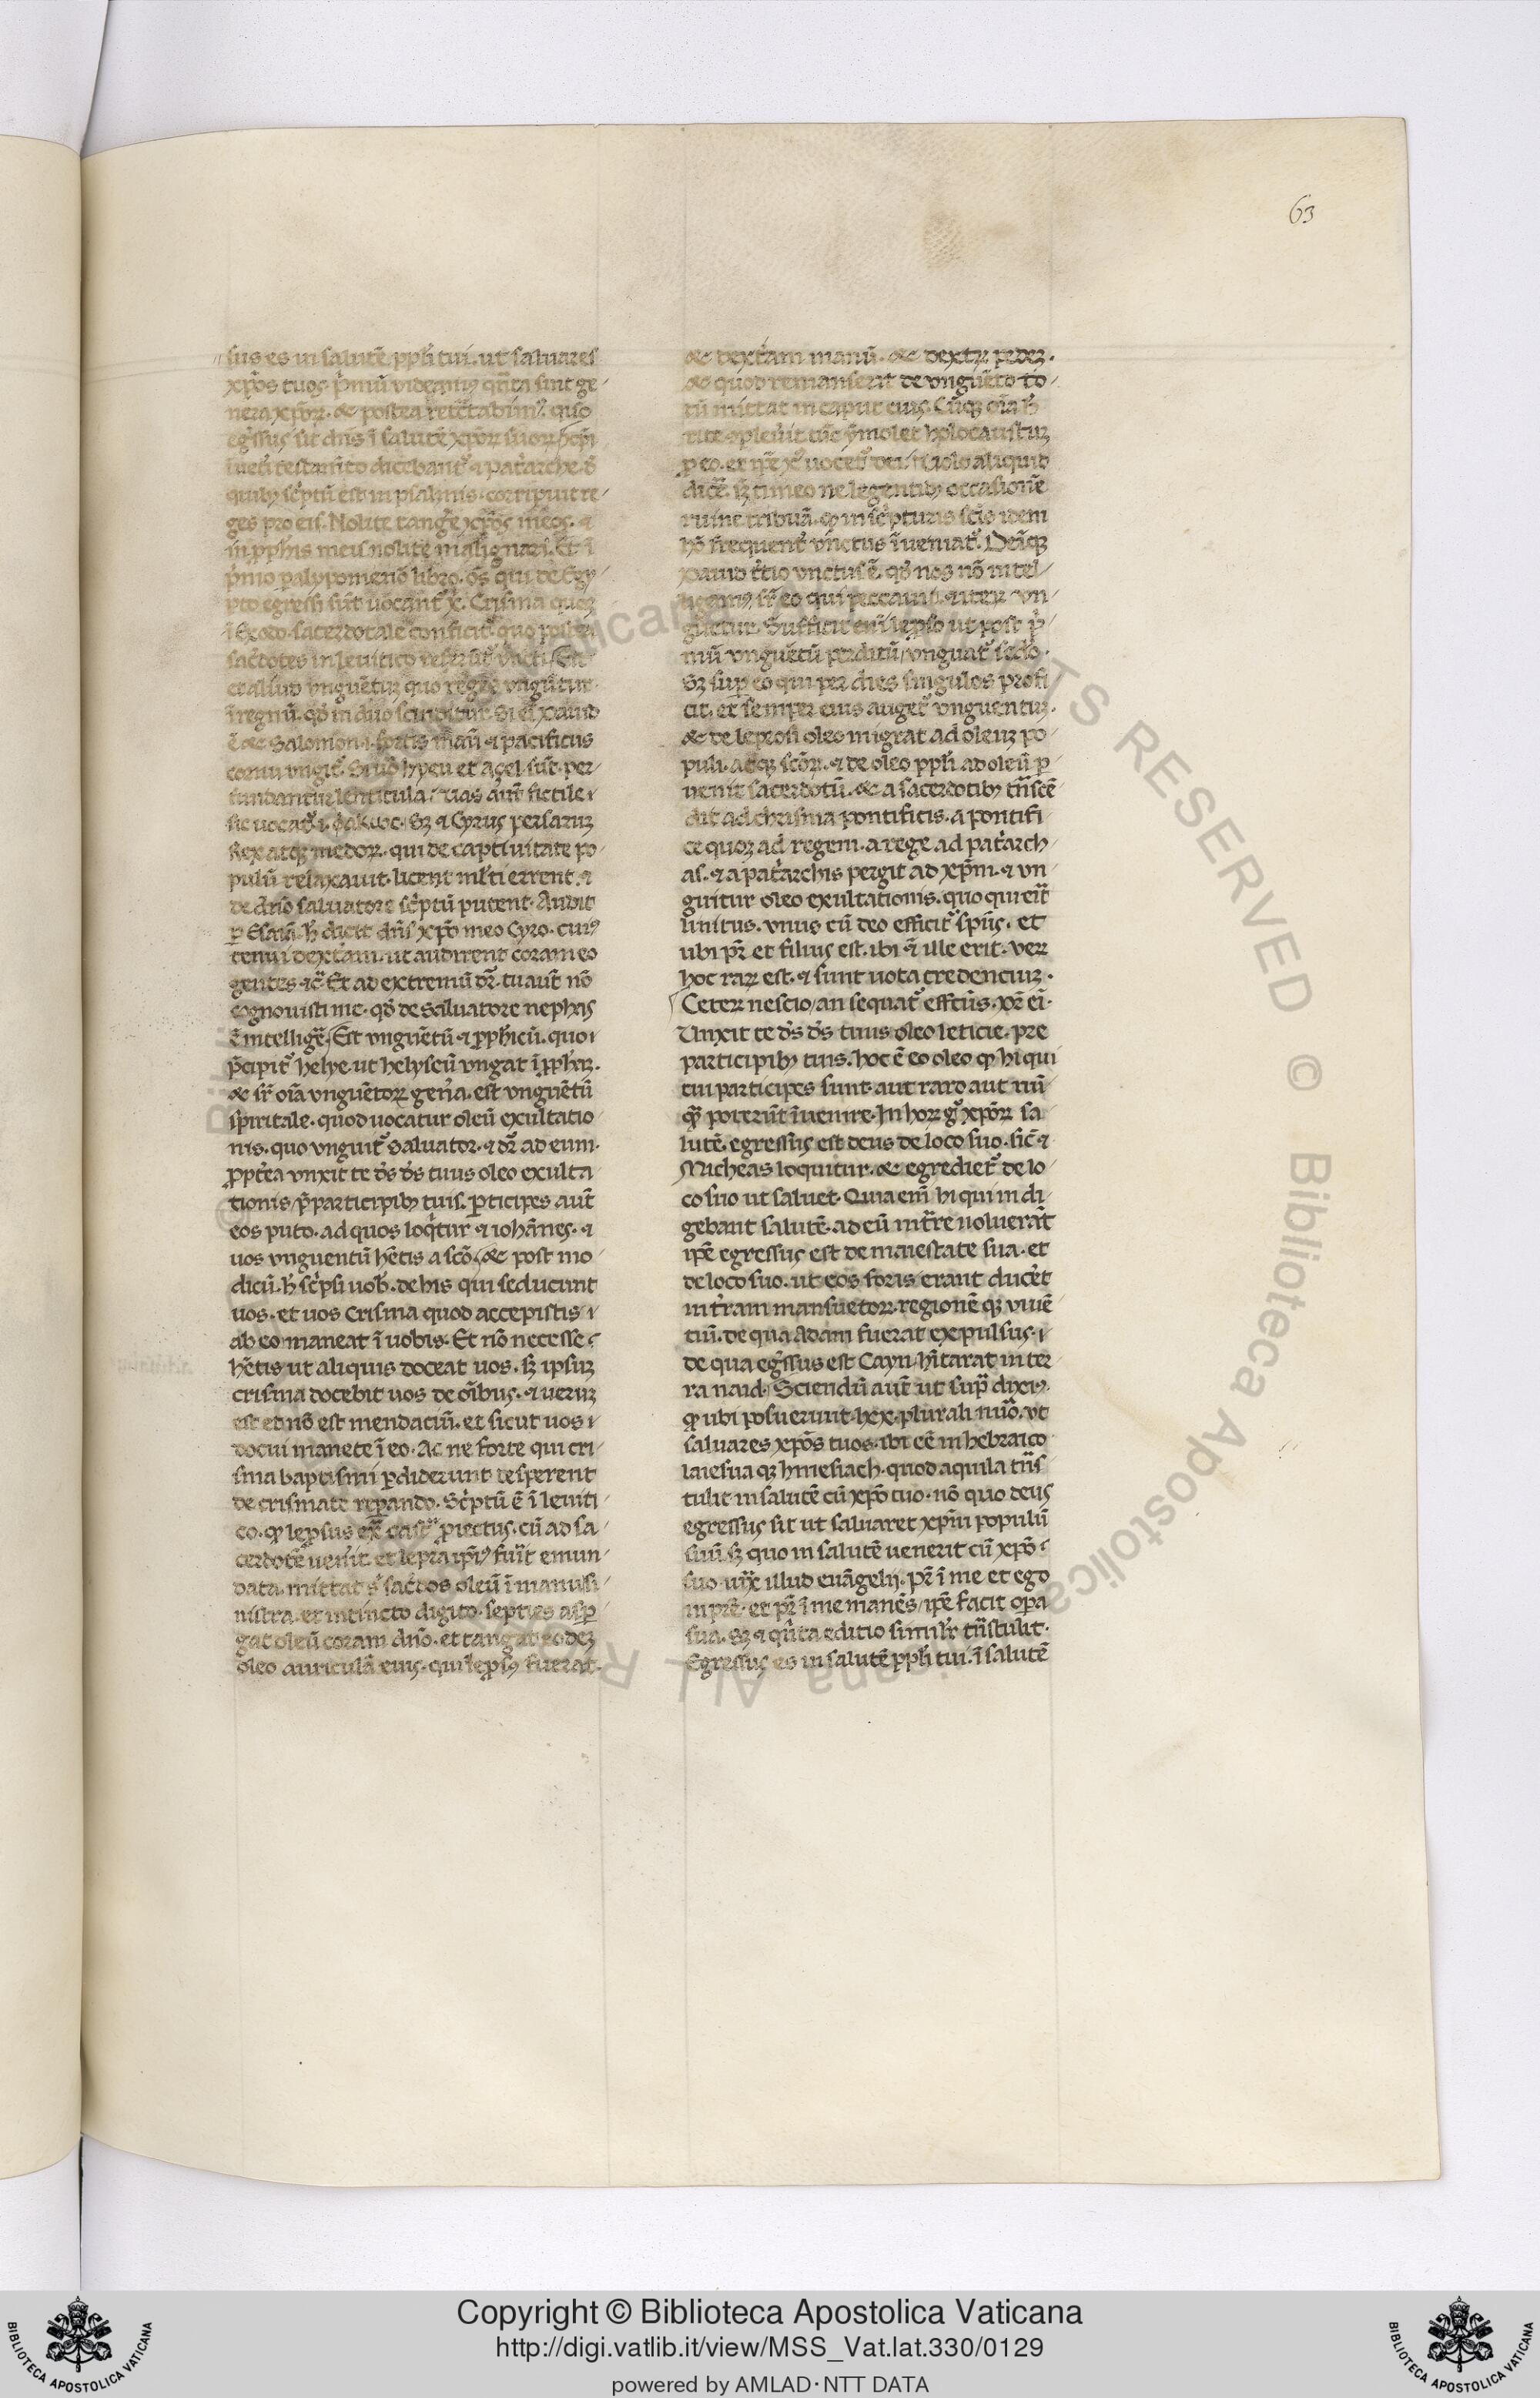 63
sus es in salutē ppl̄i tui. ut saluares
xp̄os tuos. p̄mū videamus qn̄ta sint ge
nera xp̄oꝝ. & postea retc̄tabimꝰ. quō
eḡssus sit dn̄s ī salutē xp̄oꝝ suoꝝ
ī uet̄i testam̄to dicebant᷑ ⁊ pat̄arche. d̄
quibꝫ sc̄ptū est in psalmis. corripuit re
ges pro eis. Nolite tanḡe xp̄os meos. ⁊
in p̄ph̄is meis nolite malignari. Et ī
p̄mo palypomenō libro. oēs qui de Egy
pto egressi sūt uocant᷑ xp̄i. Crisma quoqꝫ
ī Exodo. sacerdotale conficit᷑. quo postea
sac̄dotes in leuitico
et aliud vnguētuꝫ quo reges vngūtur
ī regnū. qd̄ in duo scinditur. Si ei᷑ dauid
ē & Salomon. i. fortis manū ⁊ pacificus
cornu vngit᷑. Si uō hyeu et açel sūt. per
fundantur lenticula. vas aūt fictile
sic uocat᷑. i. φακωϲ. Sꝫ ⁊ Cyrus persaruꝫ
Rex atqꝫ medoꝝ. qui de captiuitate po
pulū relaxauit. licent ml̄ti errent. ⁊
de dn̄o saluatore sc̄ptū putent. Audit
ꝑ Esaiā. h̄ dicit dn̄s xp̄o meo Cyro. cuiꝰ
tenui dext̄am. ut audirent coram eo
gentes. ⁊c̄. Et ad extremū dr̄. tu aūt nō
cognouisti me. qd̄ de Saluatore nephas
ē intelliḡe. Est vnguētū ⁊ p̄ph̄icū. quo
p̄cipit᷑ helye. ut helyseū vngat ī p̄ph̄aꝫ.
& sr̄ oīa vnguētoꝝ geña. est vnguētū
spiritale. quod uocatur oleū exultatio
nis. quo vnguit᷑ Saluator. ⁊ dr̄ ad eum.
p̄pt̄ea vnxit te d̄s d̄s tuus oleo exulta
tionis p̄ participibꝫ tuis. ꝑticipes aūt
eos puto. ad quos loq̄tur ⁊ iohānes. ⁊
uos vnguentū hētis a scō. & post mo
dicū. h̄ sc̄psi uob̄. de his qui seducunt
uos. et uos crisma quod accepistis
ab eo maneat ī uobis. Et nō necesse
hētis ut aliquis doceat uos. sꝫ ipsuꝫ
crisma docebit uos de oībus. ⁊ ueruꝫ
est et nō est mendaciū. et sicut uos
docui manete ī eo. Ac ne forte qui cri
sma baptismi ꝑdiderunt desperent
de crismate repando. Sc̄ptū ē ī leuiti
co. ꝙ lepsus ex cast᷑ piectus. cū ad sa
cerdotē uenit. et lepra ip̄iꝰ fuīt emun
data. mittat sac̄dos oleū ī manu si
nistra. et intincto digito. septies aspꝑ
gat oleū coram dn̄o. et tangat eodeꝫ
oleo auriculā eius. qui lepsꝰ fuerat.
& dext̄am manū. & dext̄ꝝ pedeꝫ.
& quod remanserit de vnguēto to
tū mittat in caput eius. Cūqꝫ oīa h̄
rite opleūit tūc ȳmolet holocaustuꝫ
ꝑ eo. et ip̄e xp̄s uocet᷑ Uolo aliquid
dic̄e. sꝫ timeo ne legentibꝫ occasionē
ruine tribuā. ꝙ in sc̄pturis sc̄is idem
hō frequent᷑ vnctus īueniat᷑. Deīqꝫ
Dauid t̄tio vnctus ē. qd̄ nos nō intel
ligemꝰ, sr̄ eo qui peccauit. ⁊ iteꝝ vn
guētur. Sufficit enī lepso ut post p̄
mū vnguētū ꝑditū, vnguat᷑ sc̄do.
Sꝫ sup eo qui per dies singulos profi
cit. et semper eius auget᷑ vnguentuꝫ.
& de leprosi oleo migrat ad oleuꝫ po
puli. atqꝫ scōꝝ. ⁊ de oleo ppl̄i ad oleū ꝑ
uenit sacerdotū. & a sacerdotibꝫ tn̄scē
dit ad chrisma pontificis. a pontifi
ce quoqꝫ ad regem. a rege ad pat̄arch
as. ⁊ a pat̄archis pergit ad xp̄m. ⁊ vn
guitur oleo exultationis. quo qui eīt
unitus. vnus cū deo efficit᷑ sp̄us. et
ubi pr̄ et filius est. ibi ⁊ ille erit. veꝝ
hoc raꝝ est. ⁊ sunt uota credenciuꝫ.
Ceteꝝ nescio, an sequat᷑ effcūs. xr̄ ei᷑.
Unxit te d̄s d̄s tuus oleo leticie. pre
participibꝫ tuis. hoc ē eo oleo ꝙ hi qui
tui participes sunt aut raro aut nū
q̄ poterūt īuenire. In hoꝝ g̊ xp̄oꝝ sa
lutē. egressus est deus de loco suo. sic̄ ⁊
Micheas loquitur. & egrediet᷑ de lo
co suo ut saluet. Quia em̄ hi qui indi
gebant salutē. ad eū int̄re noluerāt
ip̄e egressus est de maiestate sua. et
de loco suo. ut eos foris erant ducēt
in t̄ram mansuetoꝝ. regionē qꝫ viuē
tiū. de qua Adam fuerat expulsus.
de qua eḡssus est Cayn. hītarat in ter
ra naid. Sciendū aūt ut sup̄ diximꝰ.
ꝙ ubi posuerunt. lxx. plurali nūo. vt
saluares xp̄os tuos. ibi eē in hebraico
laiesua qꝫ hmesiach. quod aquila tn̄s
tulit in salutē cū xp̄o tuo. nō quo deus
egressus sit ut saluaret xp̄m populū
suū. sꝫ quo in salutē uenerit cū xp̄o
suo. iux̄ illud euāgelij. pr̄ ī me et ego
in pr̄e. et pr̄ ī me manēs, ip̄e facit oꝑa
sua. Sꝫ ⁊ qn̄ta editio simil̄r tn̄stulit.
Egressus es in salutē ppl̄i tui. ī salutē
Copyright © Biblioteca Apostolica Vaticana
http://digi.vatlib.it/view/MSS_Vat.lat.330/0129
powered by AMLAD·NTT DATA
BIBLIOTECA APOSTOLICA VATICANA
BIBLIOTECA APOSTOLICA VATICANA